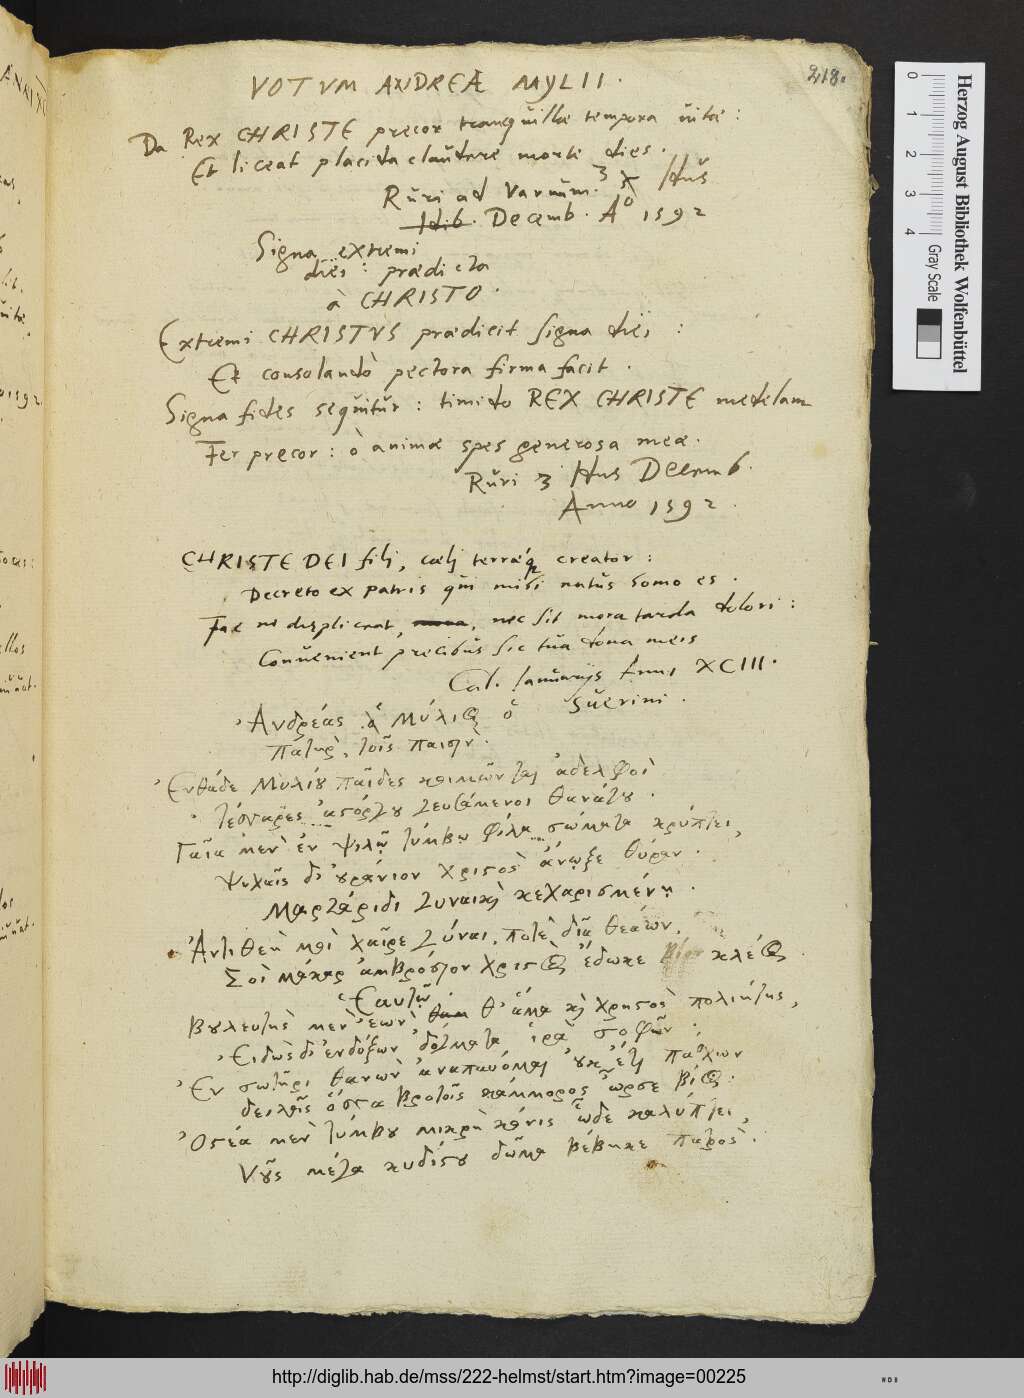 218.
VOTVM ANDREÆ MYLII.
Da Rex CHRISTE precor tranquillæ tempora uitæ :
Et liceat placida claudere morte dies.
Ruri ad Varnum. 3 Idus
Idib. Decemb. Aº 1592
Signa extremi
diei : prædicta
à CHRISTO.
Extremi CHRISTVS prædicit signa diei :
Et consolando pectora firma facit.
Signa fides sequitur : timido REX CHRISTE medelam
Fer precor : ò animæ spes generosa meæ.
Ruri 3 Idus Decemb.
Anno 1592.
CHRISTE DEI fili, cæli terræq creator :
Decreto ex patris qui mihi natus homo es.
Fac ne displiceat, nec sit mora tarda dolori :
Conuenient precibus sic tua dona meis
Cal. Januarijs Anni XCIII.
Suerini.
Ἀνδρέας ὁ Μύλιος ὁ
πατὴρ, τοῖς παισὶν.
Ἐνθάδε Μυλίου παῖδες κοιμῶνται ἀδελφοὶ
τέσσαρες ἀτόργου γευσάμενοι θανάτου.
Γαῖα μὲν ἐν ψιλῷ τύμβῳ φίλα σώματα κρύπτει,
Ψυχαῖς δ' οὐράνιον Χριστὸς ἄνῳξε θύραν.
Μαργαρίδι γυναικὶ κεχαρισμένῃ.
Ἀντιθέη μοὶ χαῖρε γύναι, ποτὲ δῖα θεάων,
Σοὶ μάκαρ ἀμβρόσιον Χριστὸς ἔδωκε κλέος.
Ἑαυτῷ.
Βουλευτὴς μὲν ἐὼν θ' ἅμα καὶ χρηστὸς πολιήτης,
Εἰδὼς δ' ἐνδόξων δόγματα ἱρὰ σοφῶν.
Ἐν σωτῆρι θανὼν ἀναπαύομαι οὐκ ἔτι πάσχων
δειλοῖς ὅσσα βροτοῖς κάμμορος ὦρσε βίος.
Ὀστέα μὲν τύμβου μικρὴ κόνις ὧδε καλύπτει,
Νοῦς μέγα κυδίστου δῶμα βέβηκε πατρὸς.
Herzog August Bibliothek Wolfenbüttel
0 1 2 3 4
Gray Scale
http://diglib.hab.de/mss/222-helmst/start.htm?image=00225